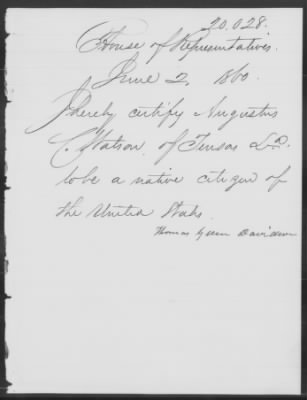 20.028.
House of Representatives.
June 2, 1860.
I hereby certify Augustus
C. Watson, of Tensas La.
to be a native citizen of
the United States.
Thomas Green Davidson